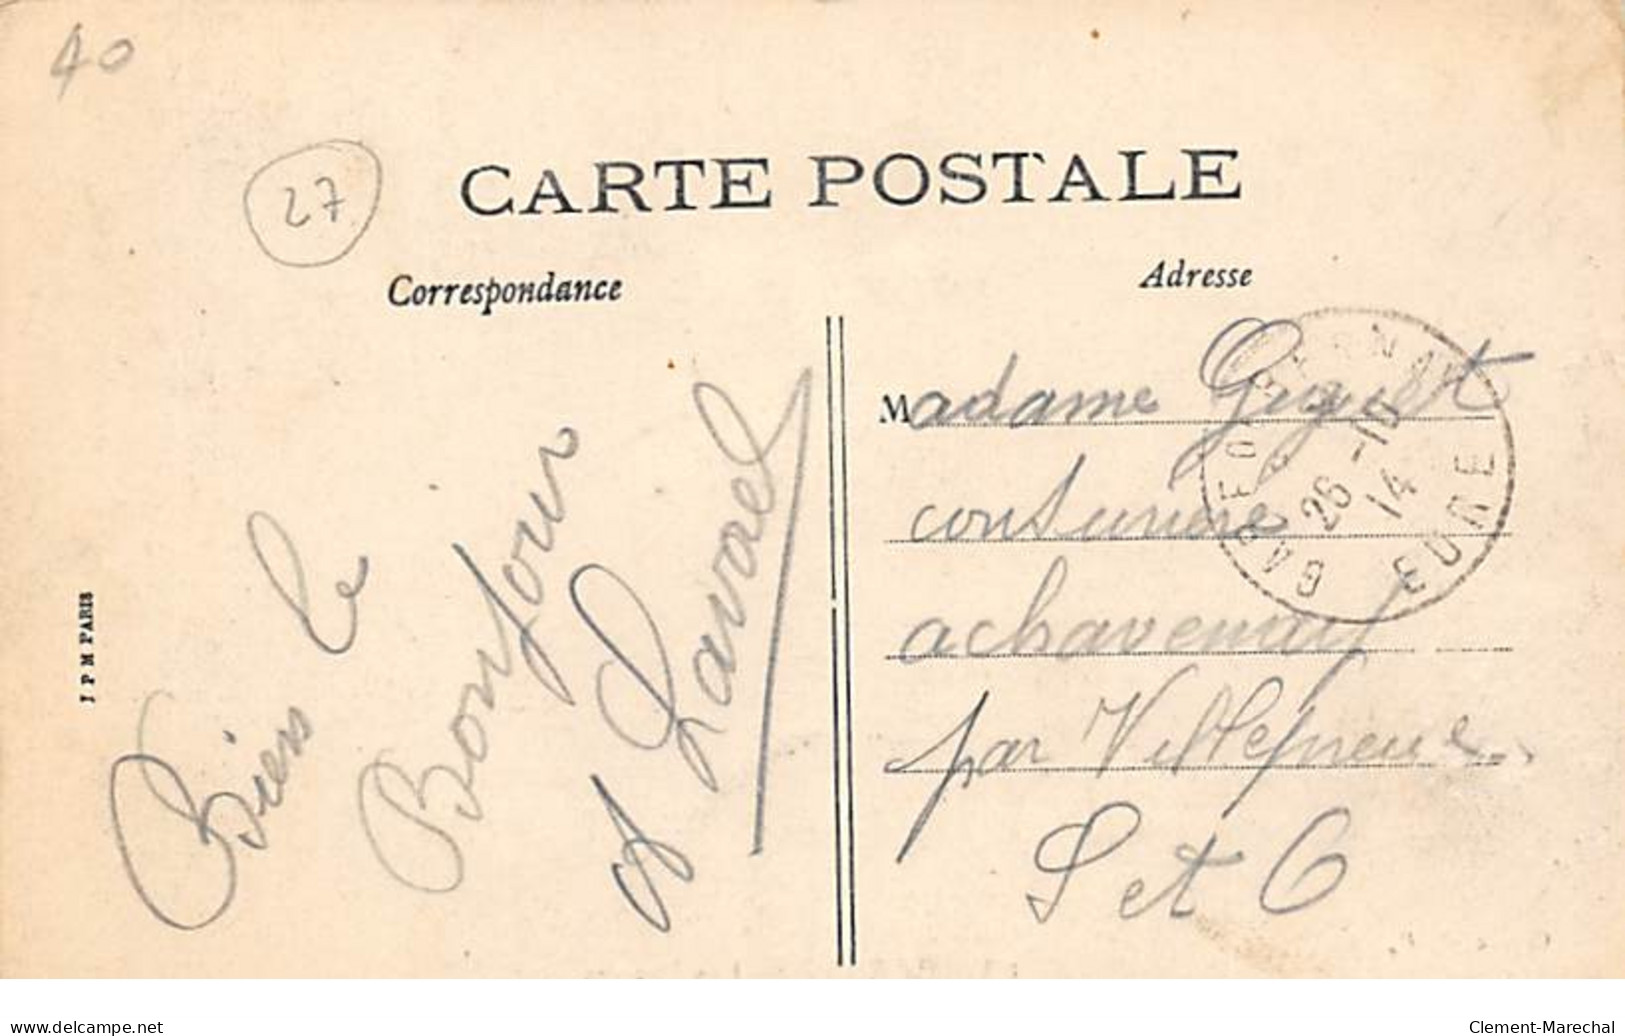 40
27
CARTE POSTALE
Correspondance
Adresse
Bien le
Bonjour
Laval
Madame Giguet
couturiere
a chavenay
par Villepreux
S et O
GARE D'EPERNAY
26 -10
14
EURE
J P M PARIS
www.delcampe.net
Clement-Marechal